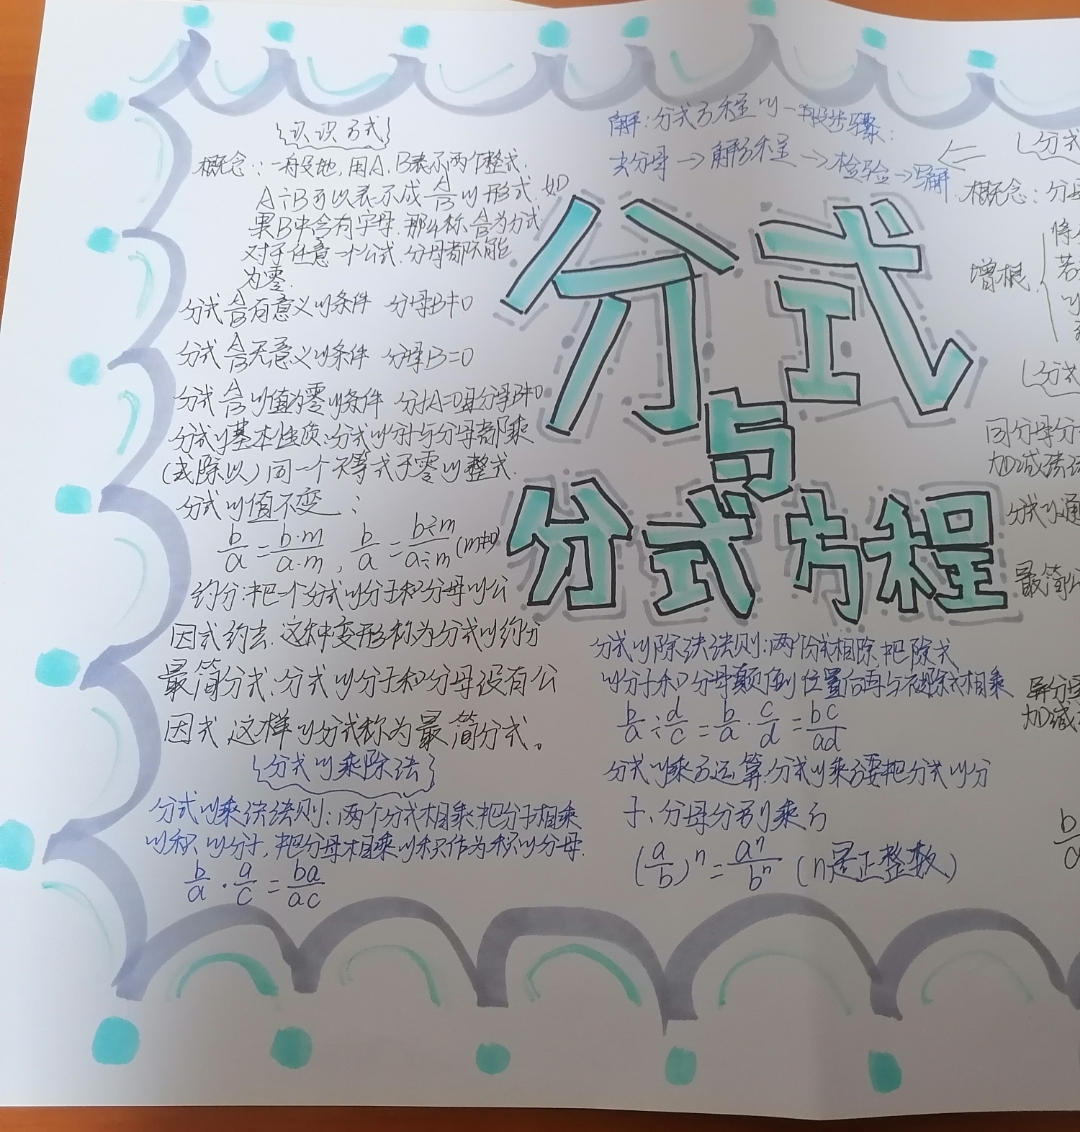 认识分式
概念:一般地,用A、B表示两个整式.
A÷B可以表示成A/B的形式.如
果B中含有字母,那么称A/B为分式
对于任意一个公式.分母都不能
为零.
分式A/B有意义的条件 分母B≠0
分式A/B无意义的条件 分母B=0
分式A/B的值为零的条件 分子A=0且分母B≠0
分式的基本性质:分式的分子与分母都乘
(或除以)同一个不等式于零的整式.
分式的值不变:
b/a=b·m/a·m, b/a=b÷m/a÷m(m≠0)
约分:把一个分式的分子和分母的公
因式约去.这种变形称为分式的约分
最简分式:分式的分子和分母没有公
因式 这样的分式称为最简分式。
分式的乘除法
分式的乘法法则:两个分式相乘把分子相乘
的积的分子,把分母相乘的积作为积的分母.
b/a·a/c=ba/ac
解:分式方程的一般步骤:
去分母→解方程→检验→写解
分式
与
分式方程
分式的除法法则:两个分式相除把除式
的分子和分母颠倒位置后再与被除式相乘
b/a÷d/c=b/a·c/d=bc/ad
分式的乘方运算.分式的乘方要把分式的分
子、分母分别乘方
(a/b)ⁿ=aⁿ/bⁿ (n是正整数)
分式
概念:分母
增根
若
分式
同分母分
加减法法
分式的通
最简公
异分母
加减
b